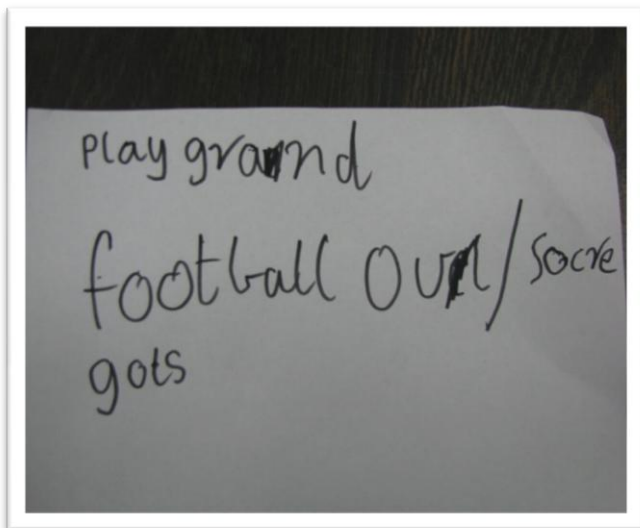 play grawnd
football Ovrl/socre
gots